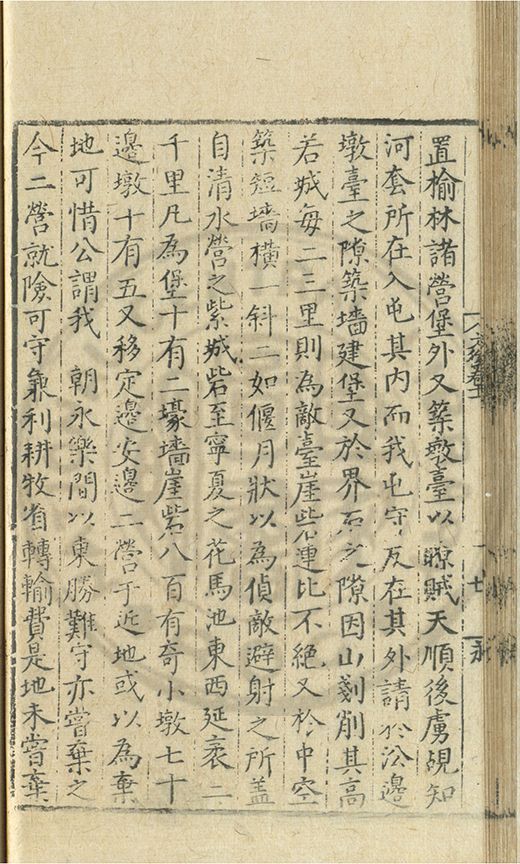 置榆林諸營堡外又築墩臺以瞭賊天順後虜覘知
河套所在入屯其內而我屯守反在其外請於沿邊
墩臺之隙築墻建堡又於界石之隙因山剗削其高
若城每二三里則為敵臺崖砦連比不絕又於中空
築短墻橫一斜二如偃月狀以為偵敵避射之所蓋
自清水營之紫城砦至寧夏之花馬池東西延袤二
千里凡為堡十有二壕墻崖砦八百有奇小墩七十
邊墩十有五又移定邊安邊二營于近地或以為棄
地可惜公謂我 朝永樂間以東勝難守亦嘗棄之
今二營就險可守兼利耕牧省轉輸費是地未嘗棄